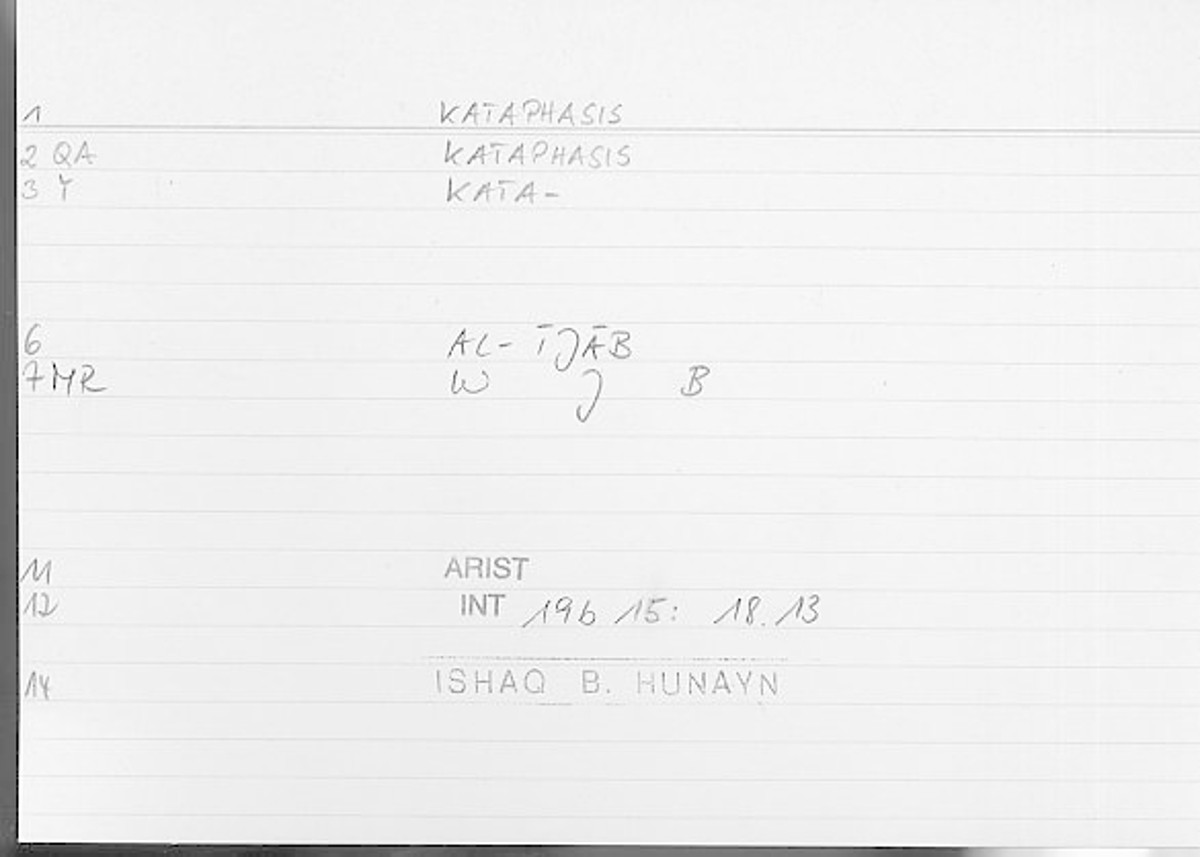 1 KATAPHASIS
2 QA KATAPHASIS
3 Y KATA-
6 AL-ĪJĀB
7 MR W J B
11 ARIST
12 INT 19b 15: 18.13
14 ISHAQ B. HUNAYN